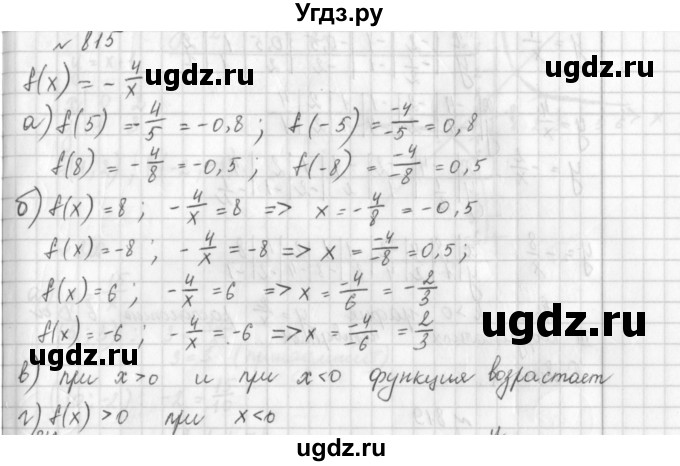 Угдз.ру
№ 815
f(x) = - 4/x
ugdz.ru ugdz.ru
а) f(5) = -4/5 = -0,8 ; f(-5) = -4/-5 = 0,8
f(8) = -4/8 = -0,5 ; f(-8) = -4/-8 = 0,5
б) f(x) = 8 ; -4/x = 8 => x = -4/8 = -0,5
f(x) = -8 ; -4/x = -8 => x = -4/-8 = 0,5 ;
f(x) = 6 ; -4/x = 6 => x = -4/6 = -2/3
ugdz.ru ugdz.ru
f(x) = -6 ; -4/x = -6 => x = -4/-6 = 2/3
в) при x>0 и при x<0 функция возрастает
г) f(x) > 0 при x<0
ugdz.ru